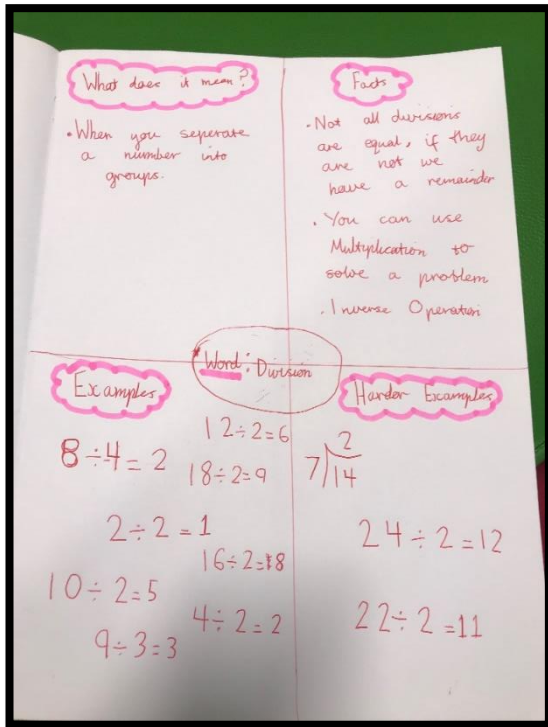 What does it mean?
• When you seperate
a number into
groups.
Facts
• Not all divisions
are equal, if they
are not we
have a remainder
• You can use
Multiplication to
solve a problem
• Inverse Operation
Word: Division
Examples
8÷4=2
12÷2=6
18÷2=9
2÷2=1
16÷2=8
10÷2=5
4÷2=2
9÷3=3
Harder Examples
2
7)14
24÷2=12
22÷2=11